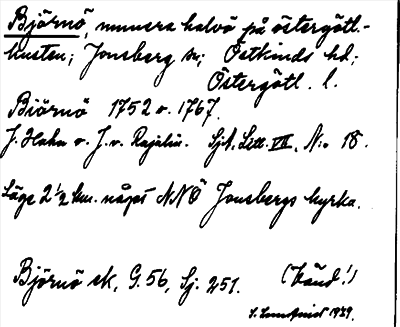 Björnö, numera halvö på östergötl.-
kusten; Jonsberg sn; Östkinds hd;
Östergötl. l.
Biörnö 1752 o. 1767.
J. Hahn o. J. v. Rajalin. Sjk. Litt. VII, N:o 18.
Läge 2 1/2 km. något NNÖ Jonsbergs kyrka.
Björnö ek, G. 56, Sj. 251. (känd!)
1929.